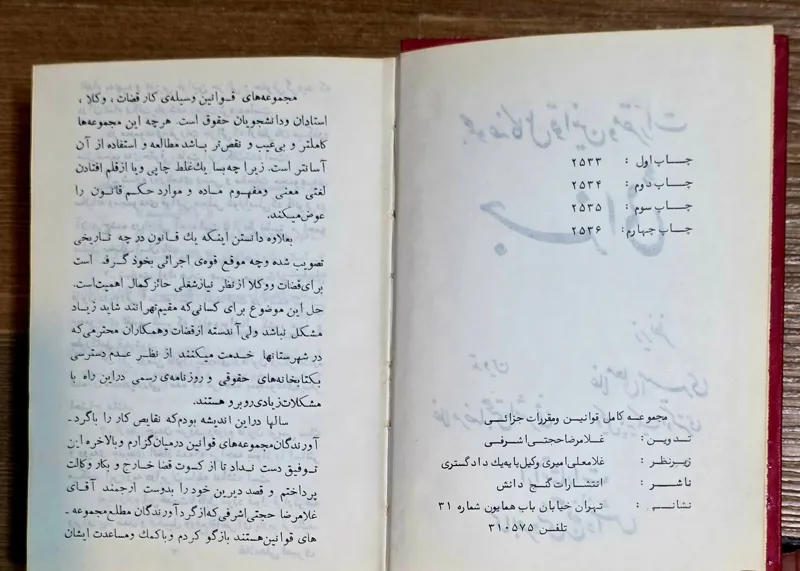 چاپ اول : ۲۵۳۳
چاپ دوم : ۲۵۳۴
چاپ سوم : ۲۵۳۵
چاپ چهارم : ۲۵۳۶
مجموعه کامل قوانین ومقررات جزائی
تدوین : غلامرضا حجتی اشرفی
زیرنظر : غلامعلی امیری وکیل پایه یك دادگستری
ناشر : انتشارات گنج دانش
نشانی : تهران خیابان باب همایون شماره ۳۱
تلفن ۳۱۰۵۷۵
مجموعه‌های قوانین وسیله‌ی کار قضات ، وکلا ،
استادان ودانشجویان حقوق است. هرچه این مجموعه‌ها
کاملتر و بی‌عیب و نقص‌تر باشد مطالعه و استفاده از آن
آسانتر است. زیرا چه بسا یك غلط چاپی ویا از قلم افتادن
لغتی معنی ومفهوم ماده و موارد حکم قانون را
عوض میکند.
بعلاوه دانستن اینکه یك قانون در چه تاریخی
تصویب شده وچه موقع قوه‌ی اجرائی بخود گرفته است
برای قضات ووکلا از نظر نیاز شغلی حائز کمال اهمیت است.
حل این موضوع برای کسانی که مقیم تهرانند شاید زیاد
مشکل نباشد ولی آندسته از قضات وهمکاران محترمی که
در شهرستانها خدمت میکنند از نظر عدم دسترسی
بکتابخانه‌های حقوقی و روزنامه‌ی رسمی دراین راه با
مشکلات زیادی روبرو هستند.
سالها دراین اندیشه بودم که نقایص کار را باگرد ـ
آورندگان مجموعه‌های قوانین درمیان گزارم وبالاخره این
توفیق دست نداد تا از کسوت قضا خارج و بکار وکالت
پرداختم و قصد دیرین خود را بدوست ارجمند آقای
غلامرضا حجتی اشرفی که از گردآورندگان مطلع مجموعه ـ
های قوانین هستند بازگو کردم وباکمك ومساعدت ایشان